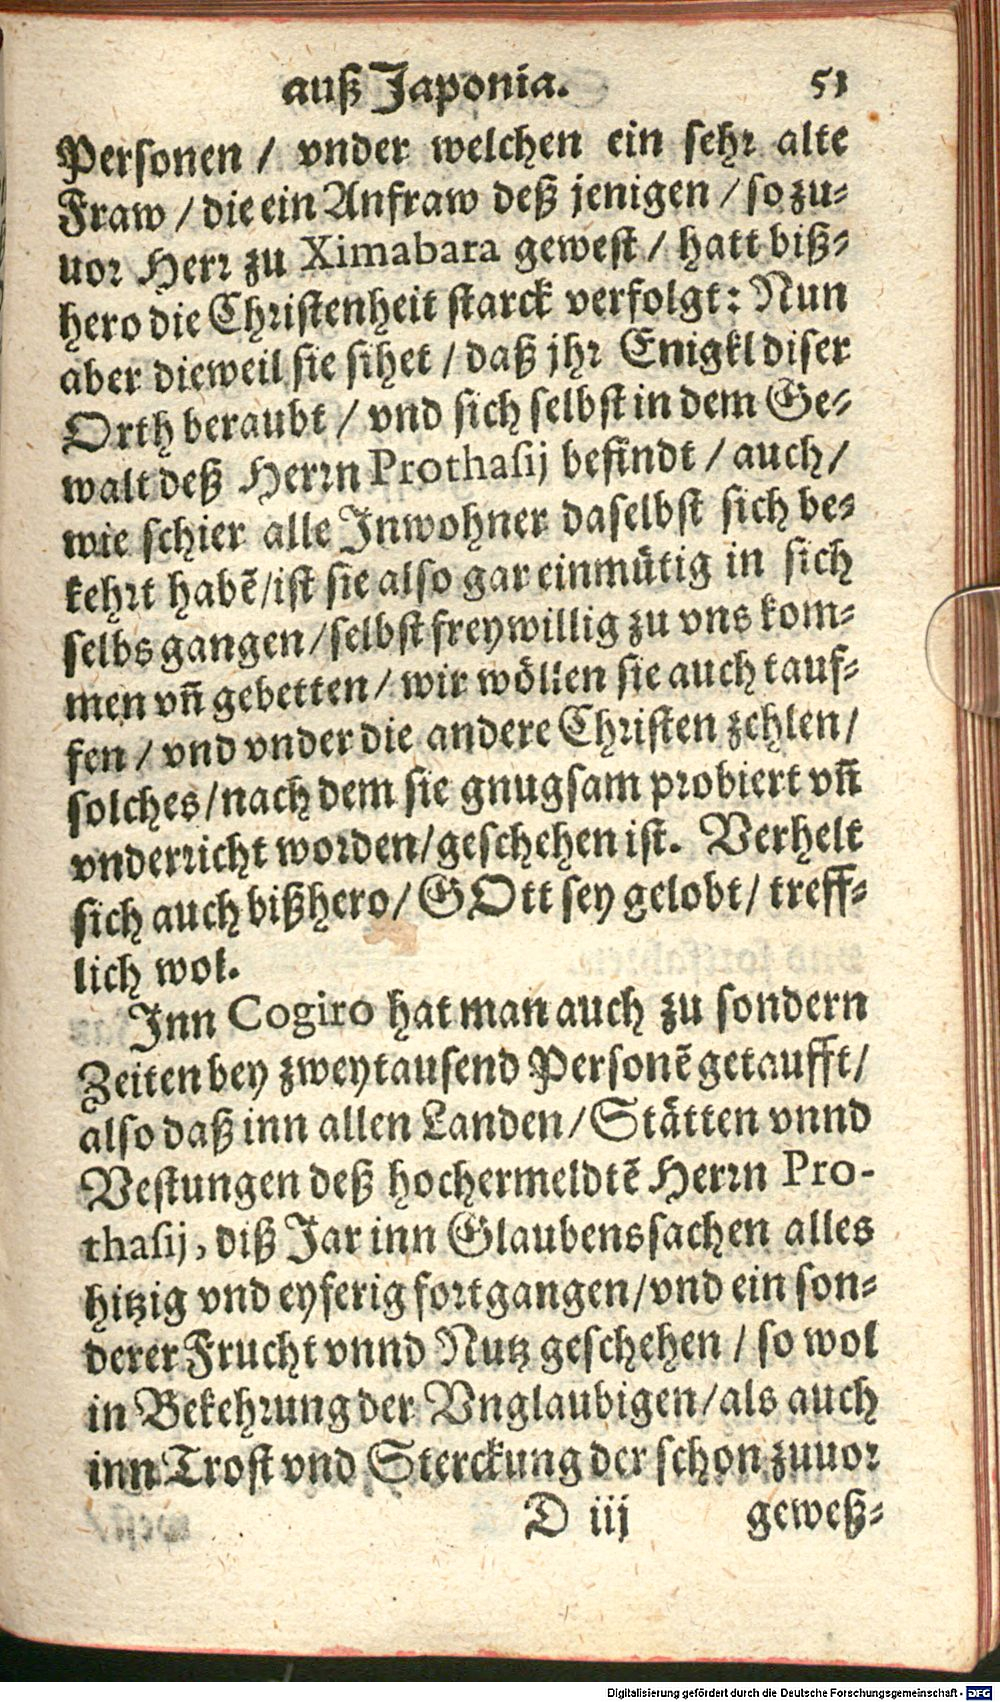 auß Japonia. 51
Personen / vnder welchen ein sehr alte
Fraw / die ein Anfraw deß jenigen / so zu-
uor Herr zu Ximabara gewest / hatt biß-
hero die Christenheit starck verfolgt: Nun
aber dieweil sie sihet / daß jhr Enigkl diser
Orth beraubt / vnd sich selbst in dem Ge-
walt deß Herrn Prothasij befindt / auch /
wie schier alle Inwohner daselbst sich be-
kehrt habẽ / ist sie also gar einmütig in sich
selbs gangen / selbst freywillig zu vns kom-
men vñ gebetten / wir wöllen sie auch tauf-
fen / vnd vnder die andere Christen zehlen /
solches / nach dem sie gnugsam probiert vñ
vnderricht worden / geschehen ist. Verhelt
sich auch bißhero / GOtt sey gelobt / treff-
lich wol.
Inn Cogiro hat man auch zu sondern
Zeiten bey zweytausend Personẽ getaufft /
also daß inn allen Landen / Stätten vnnd
Vestungen deß hochermeldtẽ Herrn Pro-
thasij, diß Jar inn Glaubenssachen alles
hitzig vnd eyferig fortgangen / vnd ein son-
derer Frucht vnnd Nutz geschehen / so wol
in Bekehrung der Vnglaubigen / als auch
inn Trost vnd Sterckung der schon zuuor
D iij geweß-
Digitalisierung gefördert durch die Deutsche Forschungsgemeinschaft - DFG